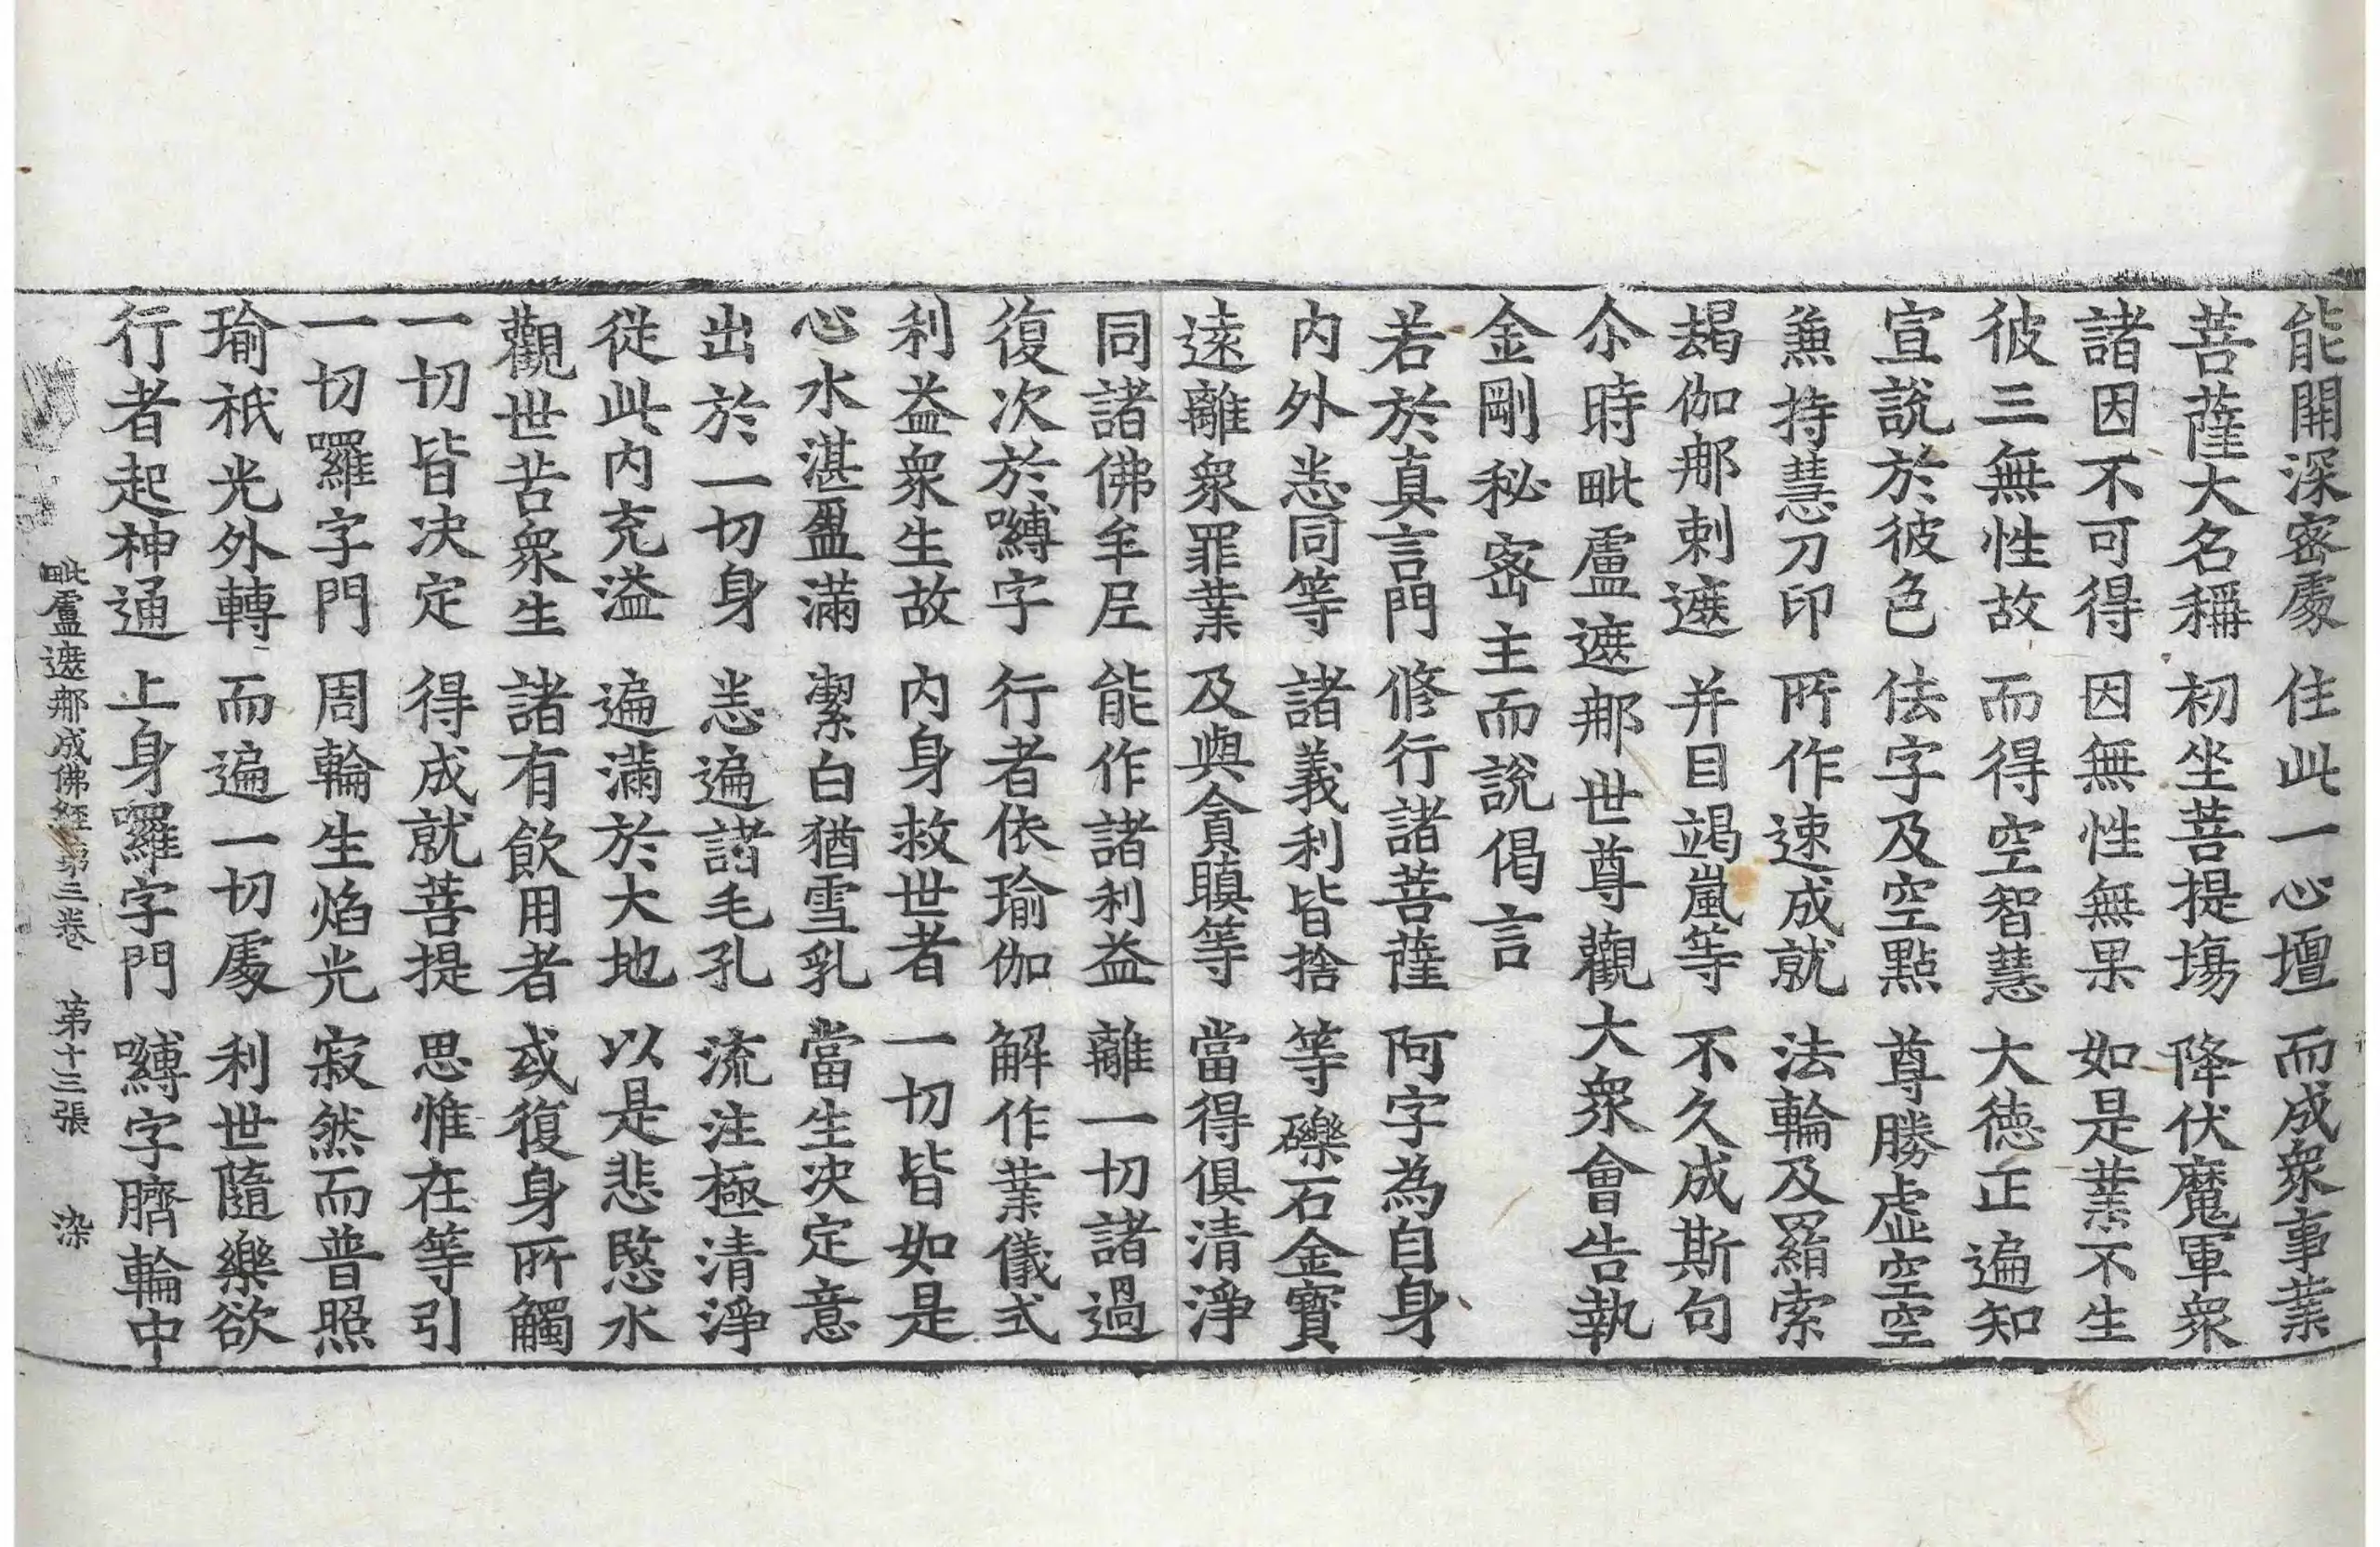 能開深密處　住此一心壇　而成衆事業
菩薩大名稱　初坐菩提場　降伏魔軍衆
諸因不可得　因無性無果　如是業不生
彼三無性故　而得空智慧　大徳正遍知
宣說於彼色　佉字及空點　尊勝虛空空
兼持慧刀印　所作速成就　法輪及羂索
朅伽那刺遮　并目竭嵐等　不久成斯句
尒時毗盧遮那世尊觀大衆會告執
金剛秘密主而說偈言
若於真言門　修行諸菩薩　阿字為自身
內外悉同等　諸義利皆捨　等礫石金寶
遠離衆罪業　及與貪瞋等　當得俱清淨
同諸佛牟尼　能作諸利益　離一切諸過
復次於嚩字　行者依瑜伽　解作業儀式
利益衆生故　內身救世者　一切皆如是
心水湛盈滿　潔白猶雪乳　當生決定意
出於一切身　悉遍諸毛孔　流注極清淨
從此內充溢　遍滿於大地　以是悲愍水
觀世苦衆生　諸有飲用者　或復身所觸
一切皆決定　得成就菩提　思惟在等引
一切囉字門　周輪生焰光　寂然而普照
瑜祇光外轉　而遍一切處　利世隨樂欲
行者起神通　上身囉字門　嚩字臍輪中
毗盧遮那成佛經第三卷　第十三張　染